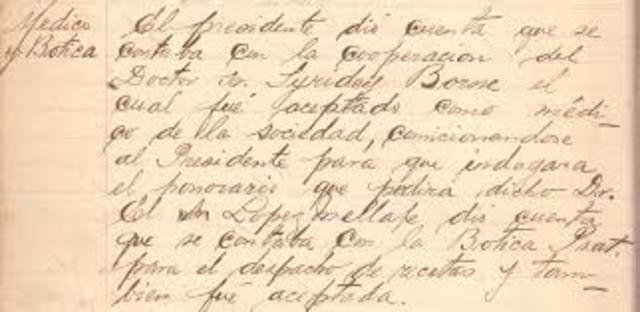 Medico
y Botica
El presidente dió cuenta que se
contaba con la cooperacion del
Doctor Sr. Borne el
cual fué aceptado como médi_
co de la sociedad, comicionandose
al Presidente para que indagara
el honorario que pedira dicho Dr.
El Sr Lopez Mellafe dió cuenta
que se contaba con la Botica Prat.
para el despacho de recetas y tam_
bien fué aceptada.